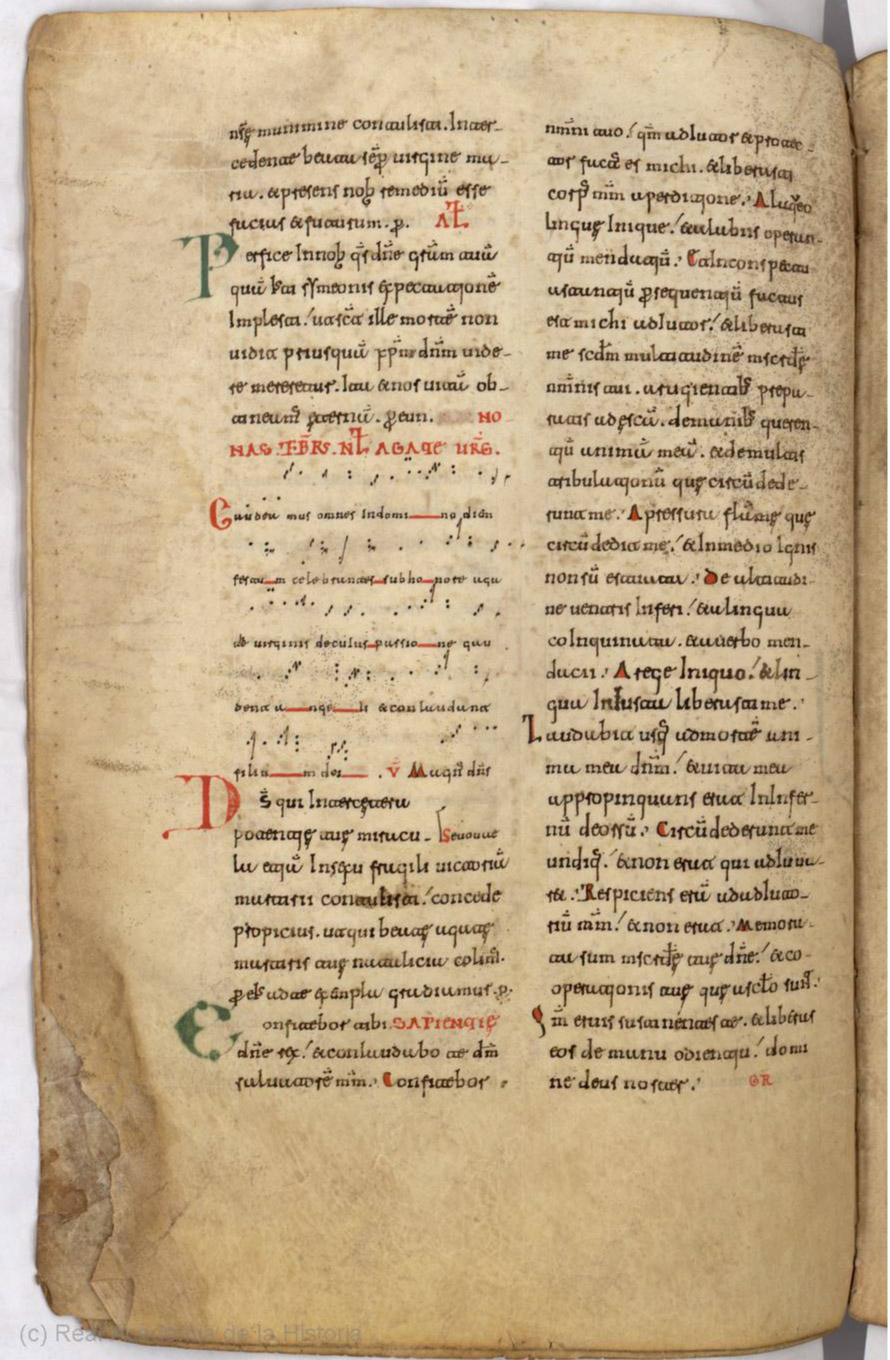 nr̄ę munimine conualescat. Interˉ
cedente beata sēp uirgine maˉ
ria. & presens nob remediū esse
facias & futurum. p. AL̄
Perfice In nob q̄s dn̄e gr̄am tuā
quā b̄ti sȳmeonis exspectationē
Implesti. ut sic̄ ille mortē non
uidit priusquā xp̄m dn̄m uideˉ
re mereretur. Ita & nos uitā obˉ
tineam̄ eternā. p eun. NO
NAS. FEBRS. NT̄ AGATE UIRG̅.
Gaudea mus omnes In domi no diem
festu m celebrantes sub ho nore aga
te uirginis de cuius passio ne gau
dent a nge li & conlaudant
filiu m dei . V̄ Magn̄ dn̄s
Seuouae
Ds̄ qui Inter cetera
potentię tuę miracuˉ
la etiā In sexu fragili uictoriā
martirii contulisti. concede
propicius. ut qui beatę agatę
martiris tuę natalicia colim̄.
p eius ad te exēmpla gradiamur. p.
Confitebor tibi. SAPIENTIĘ
dn̄e rex. & conlaudabo te dm̄
saluatorē mm̄. Confitebor
nomini tuo. qm̄ adiutor & protecˉ
tor factus es michi. & liberasti
corpus mm̄ a perditione. A laqueo
linguę Inique. & a labiis operanˉ
tiū mendatiū. & In conspectu
astantiū persequentiū factus
es michi adiutor. & liberasti
me scdm̄ multitudinē mscrdię
nominis tui. a rugientibus prepaˉ
ratis ad escā. de manibus querenˉ
tiū animā meā. & de multis
tribulationū quę circūdedeˉ
runt me. A pressura flāmę quę
circūdedit me. & In medio Ignis
non sū estuatu. De altitudiˉ
ne uentris Inferi. & a lingua
coInquinata. & a uerbo menˉ
dacii. A rege Iniquo. & linˉ
gua Iniusta liberasti me.
Laudabit usq ad mortē aniˉ
ma mea dn̄m. & uita mea
appropinquans erat In Inferˉ
nū deorsū. Circūdederunt me
undiq. & non erat qui adiuuaˉ
ret. Respiciens erā ad adiutoˉ
riū mm̄. & non erat. Memoraˉ
tus sum mscrdię tuę dn̄e. & coˉ
operationis tuę quę a scło sunt.
Qm̄ eruis sustinentes te. & liberas
eos de manu odientiū. domi
ne deus noster. GR
(c) Real Academia de la Historia